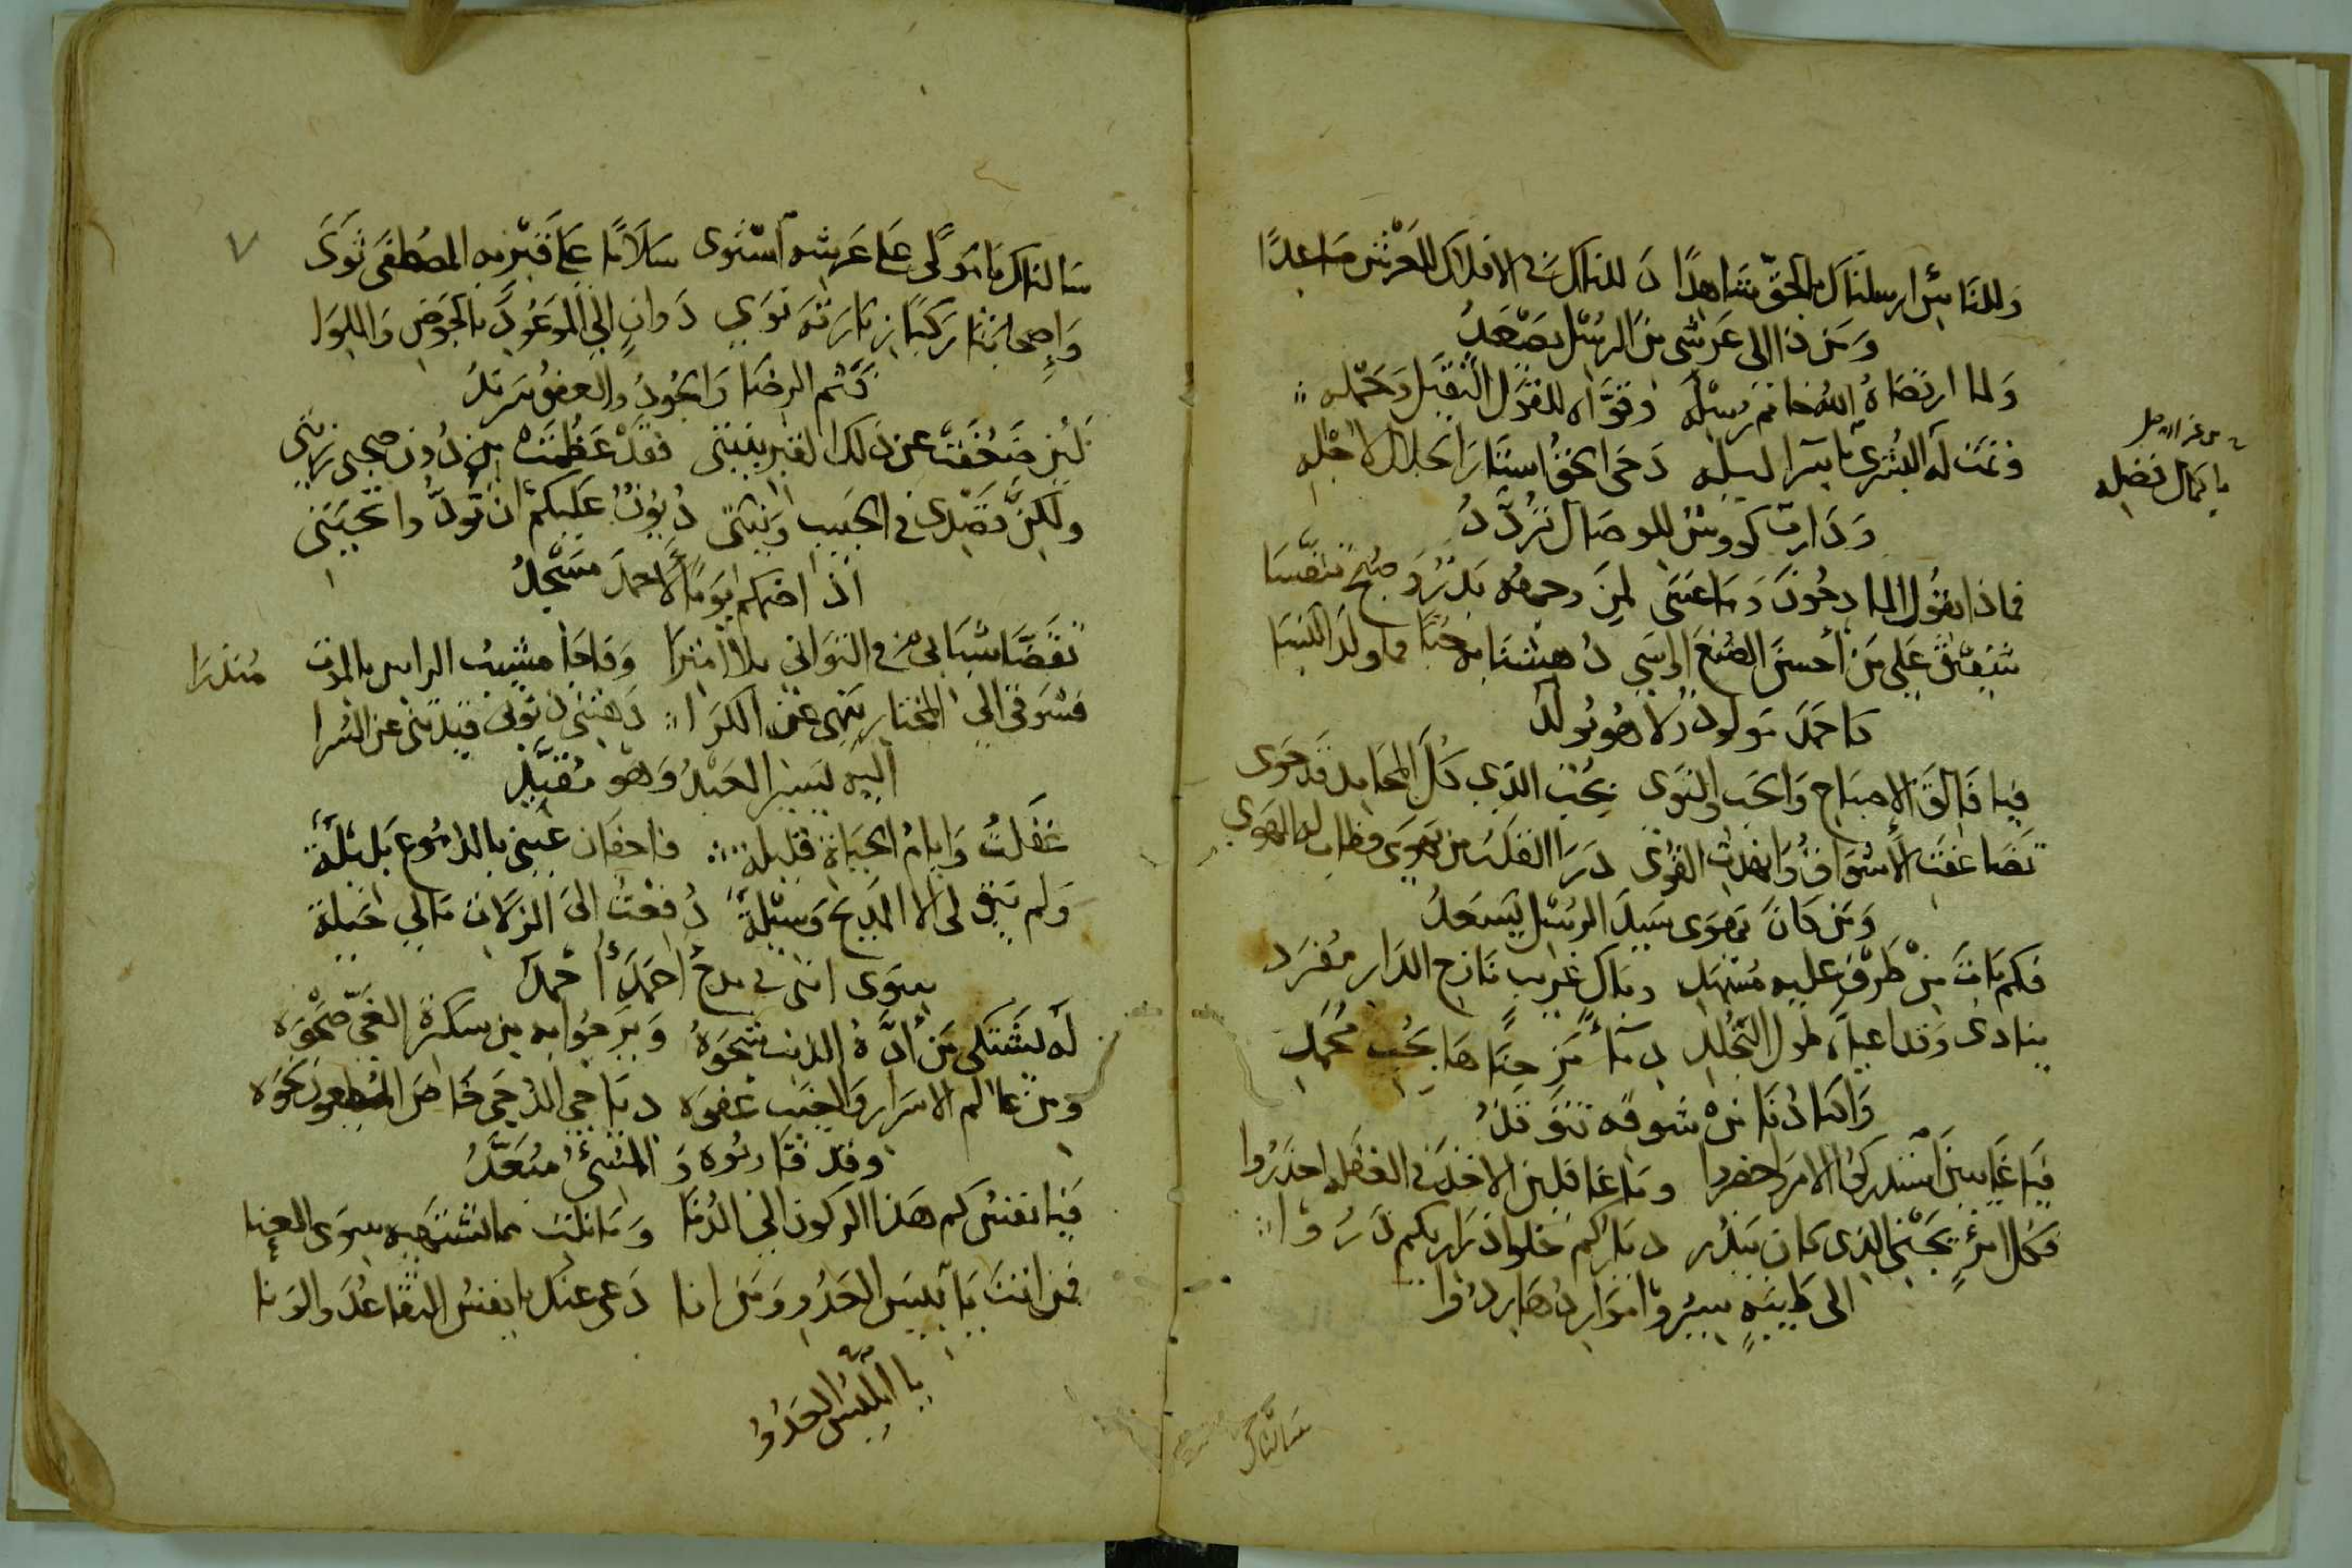 وللناس ارسلناك بالحق شاهدًا د للناك في الافلاك للعرش صاعدًا
ومن ذا الى عرشي من الرسل يصعد
ولما ارتضاه الله خاتم رسله وقوّاه للقول الثقيل وحمله
وتمت له البشرى باسرا ليله دحى الحق استار الجلال لاجله
يا كمال فضله
ودارت كووس للوصال تردد
فماذا يقول المادحون وما عسى لمن وجهه بدر وصبح تنفسا
شفيق على من أحسن الصنع او اسى دهشنا به حبا فما ولد النسا
كاحمد مولود ولا هو يولد
فيا فالق الاصباح والحب والنوى بحب الذي كل المحامد قد حوى
تضاعفت الأشواق وانهدت القوى درا القلب من يهوى فطاب له الهوى
ومن كان يهوى سيد الرسل يسعد
فكم بات من طرف عليه مسهد وباك غريب نازح الدار مفرد
ينادي وقد اعياه طول التجلد دما مزجناها بحب محمد
واكبادنا من شوقه تتوقد
فيا غايبين استدركوا الامر واحضروا وما غافلين الاخذ في الغفله احذروا
فكل امرئ يجني الذي كان يبذر دياركم خلوا اوزاركم ذروا
الى طيبة سيروا مواردها ردوا
سالناك
سالناك يا مولى على عرشه استوى سلامًا على قبر به المصطفى ثوى
وإصحابنا ركبًا زيارته نوي دوانٍ الى الموعود بالحوض واللوا
فثم الرضا والجود والعفو سرمد
لئن ضعفت عن ذلك القبر بنيتي فقد عظمت من دون صحبي رزيتي
ولكن قصدي في الحبيب ونيتي ديون عليكم ان تودوا تحيتي
اذا ضمكم يوما لاحمد مسجد
تقضّا شبابي في التواني بلا امترا وفاجا مشيب الراس بالموت منذرا
فشوقي الى المختار ينهى عن الكرا دهتني ذنوبي قيدتني عن السرا
اليه يسير العبد وهو مقيد
غفلت وايام الحياة قليلة فاجفان عيني بالدموع بليلة
ولم يبق لي الا المديح وسيلة دفعت الى الزلات مالي حيلة
سوى انني في مدح احمد أحمد
له يشتكي من أدّه الذنب شجوه ويرجوا به من سكرة الغي صحوه
ومن عالم الاسرار والغيب عفوه دياجي الدجى خاض المطيعون نحوه
وقد قاربوه والمسيء مبعد
فيا نفس كم هذا الركون الى الدنا وما نلت مما تشتهيه سوى العنا
فمن انت يا بليس العدو ومن انا دعى عنك يا نفس التقاعد والونا
يا ابليس العدوا